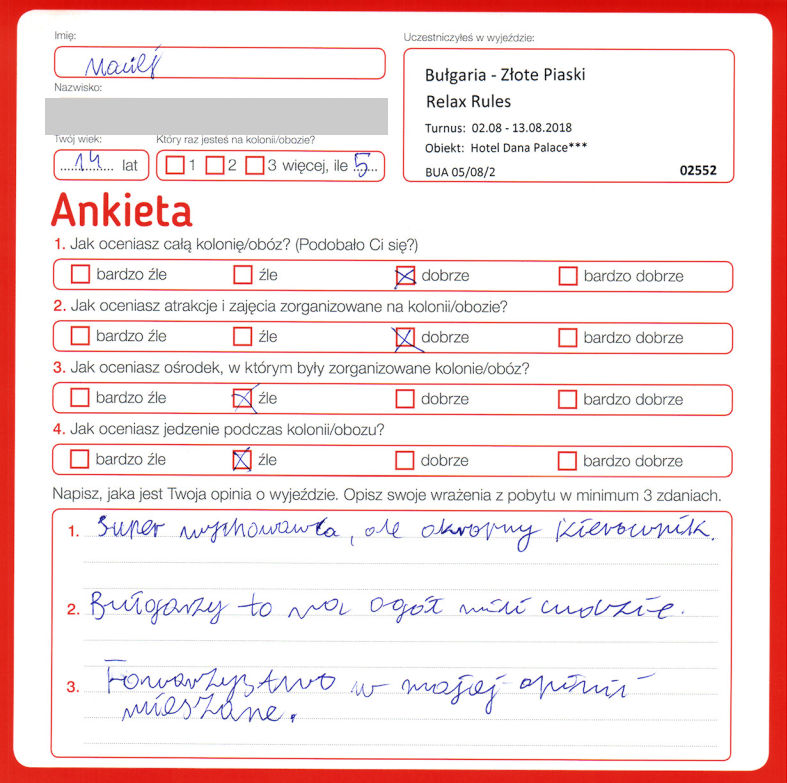 Imię:
Maciej
Uczestniczyłeś w wyjeździe:
Bułgaria - Złote Piaski
Relax Rules
Turnus: 02.08 - 13.08.2018
Obiekt: Hotel Dana Palace***
BUA 05/08/2
02552
Nazwisko:
Twój wiek:
14 lat
Który raz jesteś na kolonii/obozie?
1 2 3 więcej, ile 5
Ankieta
1. Jak oceniasz całą kolonię/obóz? (Podobało Ci się?)
bardzo źle źle dobrze bardzo dobrze
2. Jak oceniasz atrakcje i zajęcia zorganizowane na kolonii/obozie?
bardzo źle źle dobrze bardzo dobrze
3. Jak oceniasz ośrodek, w którym były zorganizowane kolonie/obóz?
bardzo źle źle dobrze bardzo dobrze
4. Jak oceniasz jedzenie podczas kolonii/obozu?
bardzo źle źle dobrze bardzo dobrze
Napisz, jaka jest Twoja opinia o wyjeździe. Opisz swoje wrażenia z pobytu w minimum 3 zdaniach.
1. Super wychowawca, ale okropny kierownik.
2. Bułgarzy to na ogół mili ludzie.
3. Towarzystwo w mojej opinii
mieszane.